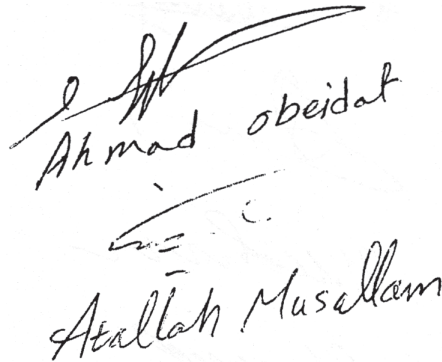 Ahmad obeidat
Atallah Musallam